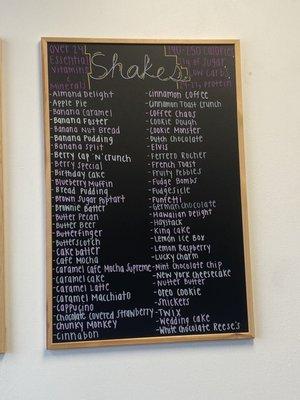 over 24
Essential
Vitamins
&
Minerals
Shakes
140-250 calories
of Sugar
low Carbs
protein
-Almond Delight
-Apple Pie
-Banana Caramel
-Banana Foster
-Banana Nut Bread
-Banana Pudding
-Banana Split
-Berry Cap 'N' Crunch
-Berry Special
-Birthday Cake
-Blueberry Muffin
-Bread Pudding
-Brown Sugar Poptart
-Brownie Batter
-Butter Pecan
-Butter Beer
-Butterfinger
-Butterscotch
-Cake batter
-Cafe Mocha
-Caramel Cafe Mocha Supreme
-Caramel Cake
-Caramel Latte
-Caramel Macchiato
-Cappucino
-Chocolate Covered Strawberry
-Chunky Monkey
-Cinnabon
-Cinnamon Coffee
-Cinnamon Toast Crunch
-Coffee Chaos
-Cookie Dough
-Cookie Monster
-Dutch Chocolate
-Elvis
-Ferrero Rocher
-French Toast
-Fruity Pebbles
-Fudge Bombs
-Fudgesicle
-Funfetti
-German Chocolate
-Hawaiian Delight
-Haystack
-King Cake
-Lemon Ice Box
-Lemon Raspberry
-Lucky Charm
-Mint Chocolate Chip
-New York Cheesecake
-Nutter Butter
-Oreo Cookie
-Snickers
-TWIX
-Wedding Cake
-White Chocolate Reese's